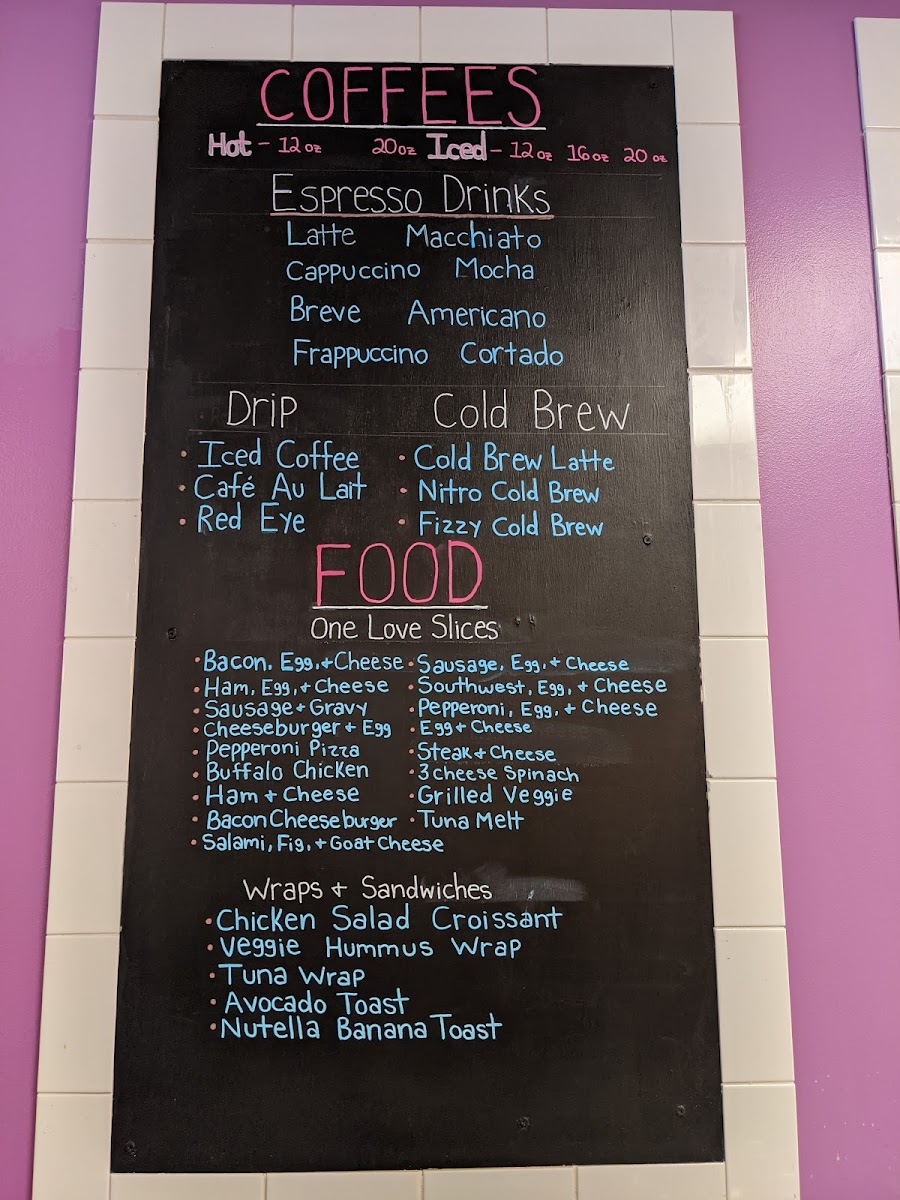 COFFEES
Hot - 12oz 20oz Iced - 12oz 16oz 20oz
Espresso Drinks
Latte Macchiato
Cappuccino Mocha
Breve Americano
Frappuccino Cortado
Drip Cold Brew
• Iced Coffee • Cold Brew Latte
• Café Au Lait • Nitro Cold Brew
• Red Eye • Fizzy Cold Brew
FOOD
One Love Slices
• Bacon, Egg, + Cheese • Sausage, Egg, + Cheese
• Ham, Egg, + Cheese • Southwest, Egg, + Cheese
• Sausage + Gravy • Pepperoni, Egg, + Cheese
• Cheeseburger + Egg • Egg + Cheese
• Pepperoni Pizza • Steak + Cheese
• Buffalo Chicken • 3 Cheese Spinach
• Ham + Cheese • Grilled Veggie
• Bacon Cheeseburger • Tuna Melt
• Salami, Fig, + Goat Cheese
Wraps + Sandwiches
• Chicken Salad Croissant
• Veggie Hummus Wrap
• Tuna Wrap
• Avocado Toast
• Nutella Banana Toast